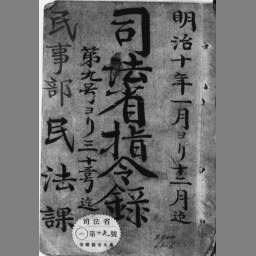 明治十年一月ヨリ十二月迄
司法省指令録
第九号ヨリ三十号迄
民事部民法課
司法省
第 號